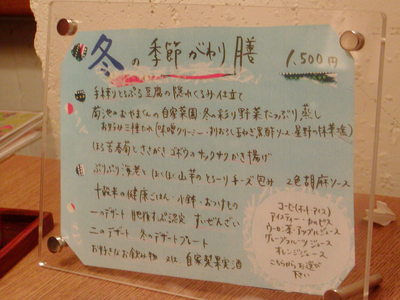 冬の季節がわり膳
1,500円
手作りとろふる豆腐の隠れくるみ仕立て
菊池のおやまんの自家菜園 冬の彩り野菜たっぷり蒸し
お好み三種たれ(味噌クリーミー・刻おろし
ほろ苦春菊とささがきゴボウのサックサクかき揚げ
ぷりぷり海老とほくほく山芋のとろーりチーズ包み 2色胡麻ソース
十穀米の健康ごはん・小鉢・おつけもの
一のデザート 肥後ずいぶ認定 すいぜんざい
二のデザート 冬のデザートプレート
お好きなお飲み物 又は 自家製果実酒
コーヒー(ホット アイス)
アイスティー・カルピス
ウーロン茶・アップルジュース
グレープフルーツジュース
オレンジジュース
こちらからお選び下さい